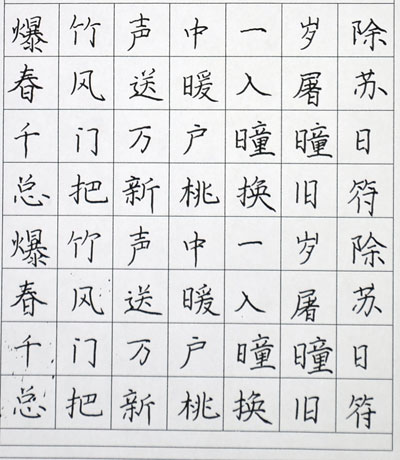 爆竹声中一岁除
春风送暖入屠苏
千门万户曈曈日
总把新桃换旧符
爆竹声中一岁除
春风送暖入屠苏
千门万户曈曈日
总把新桃换旧符